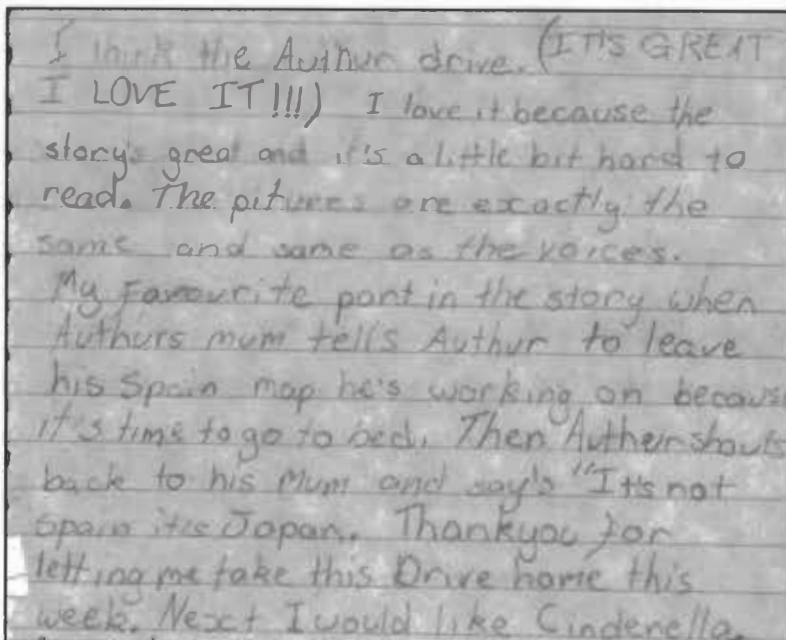 I think the Authur drive. (IT'S GREAT
I LOVE IT!!!) I love it because the
story's great and it's a little bit hard to
read. The pitures are exactly the
same and same as the voices.
My Favourite part in the story when
Authurs mum tells Authur to leave
his Spain map he's working on becaus
it's time to go to bed. Then Authur shouts
back to his Mum and say's "It's not
Spain it is Japan. Thankyou for
letting me take this Drive home this
week. Next I would like Cinderella